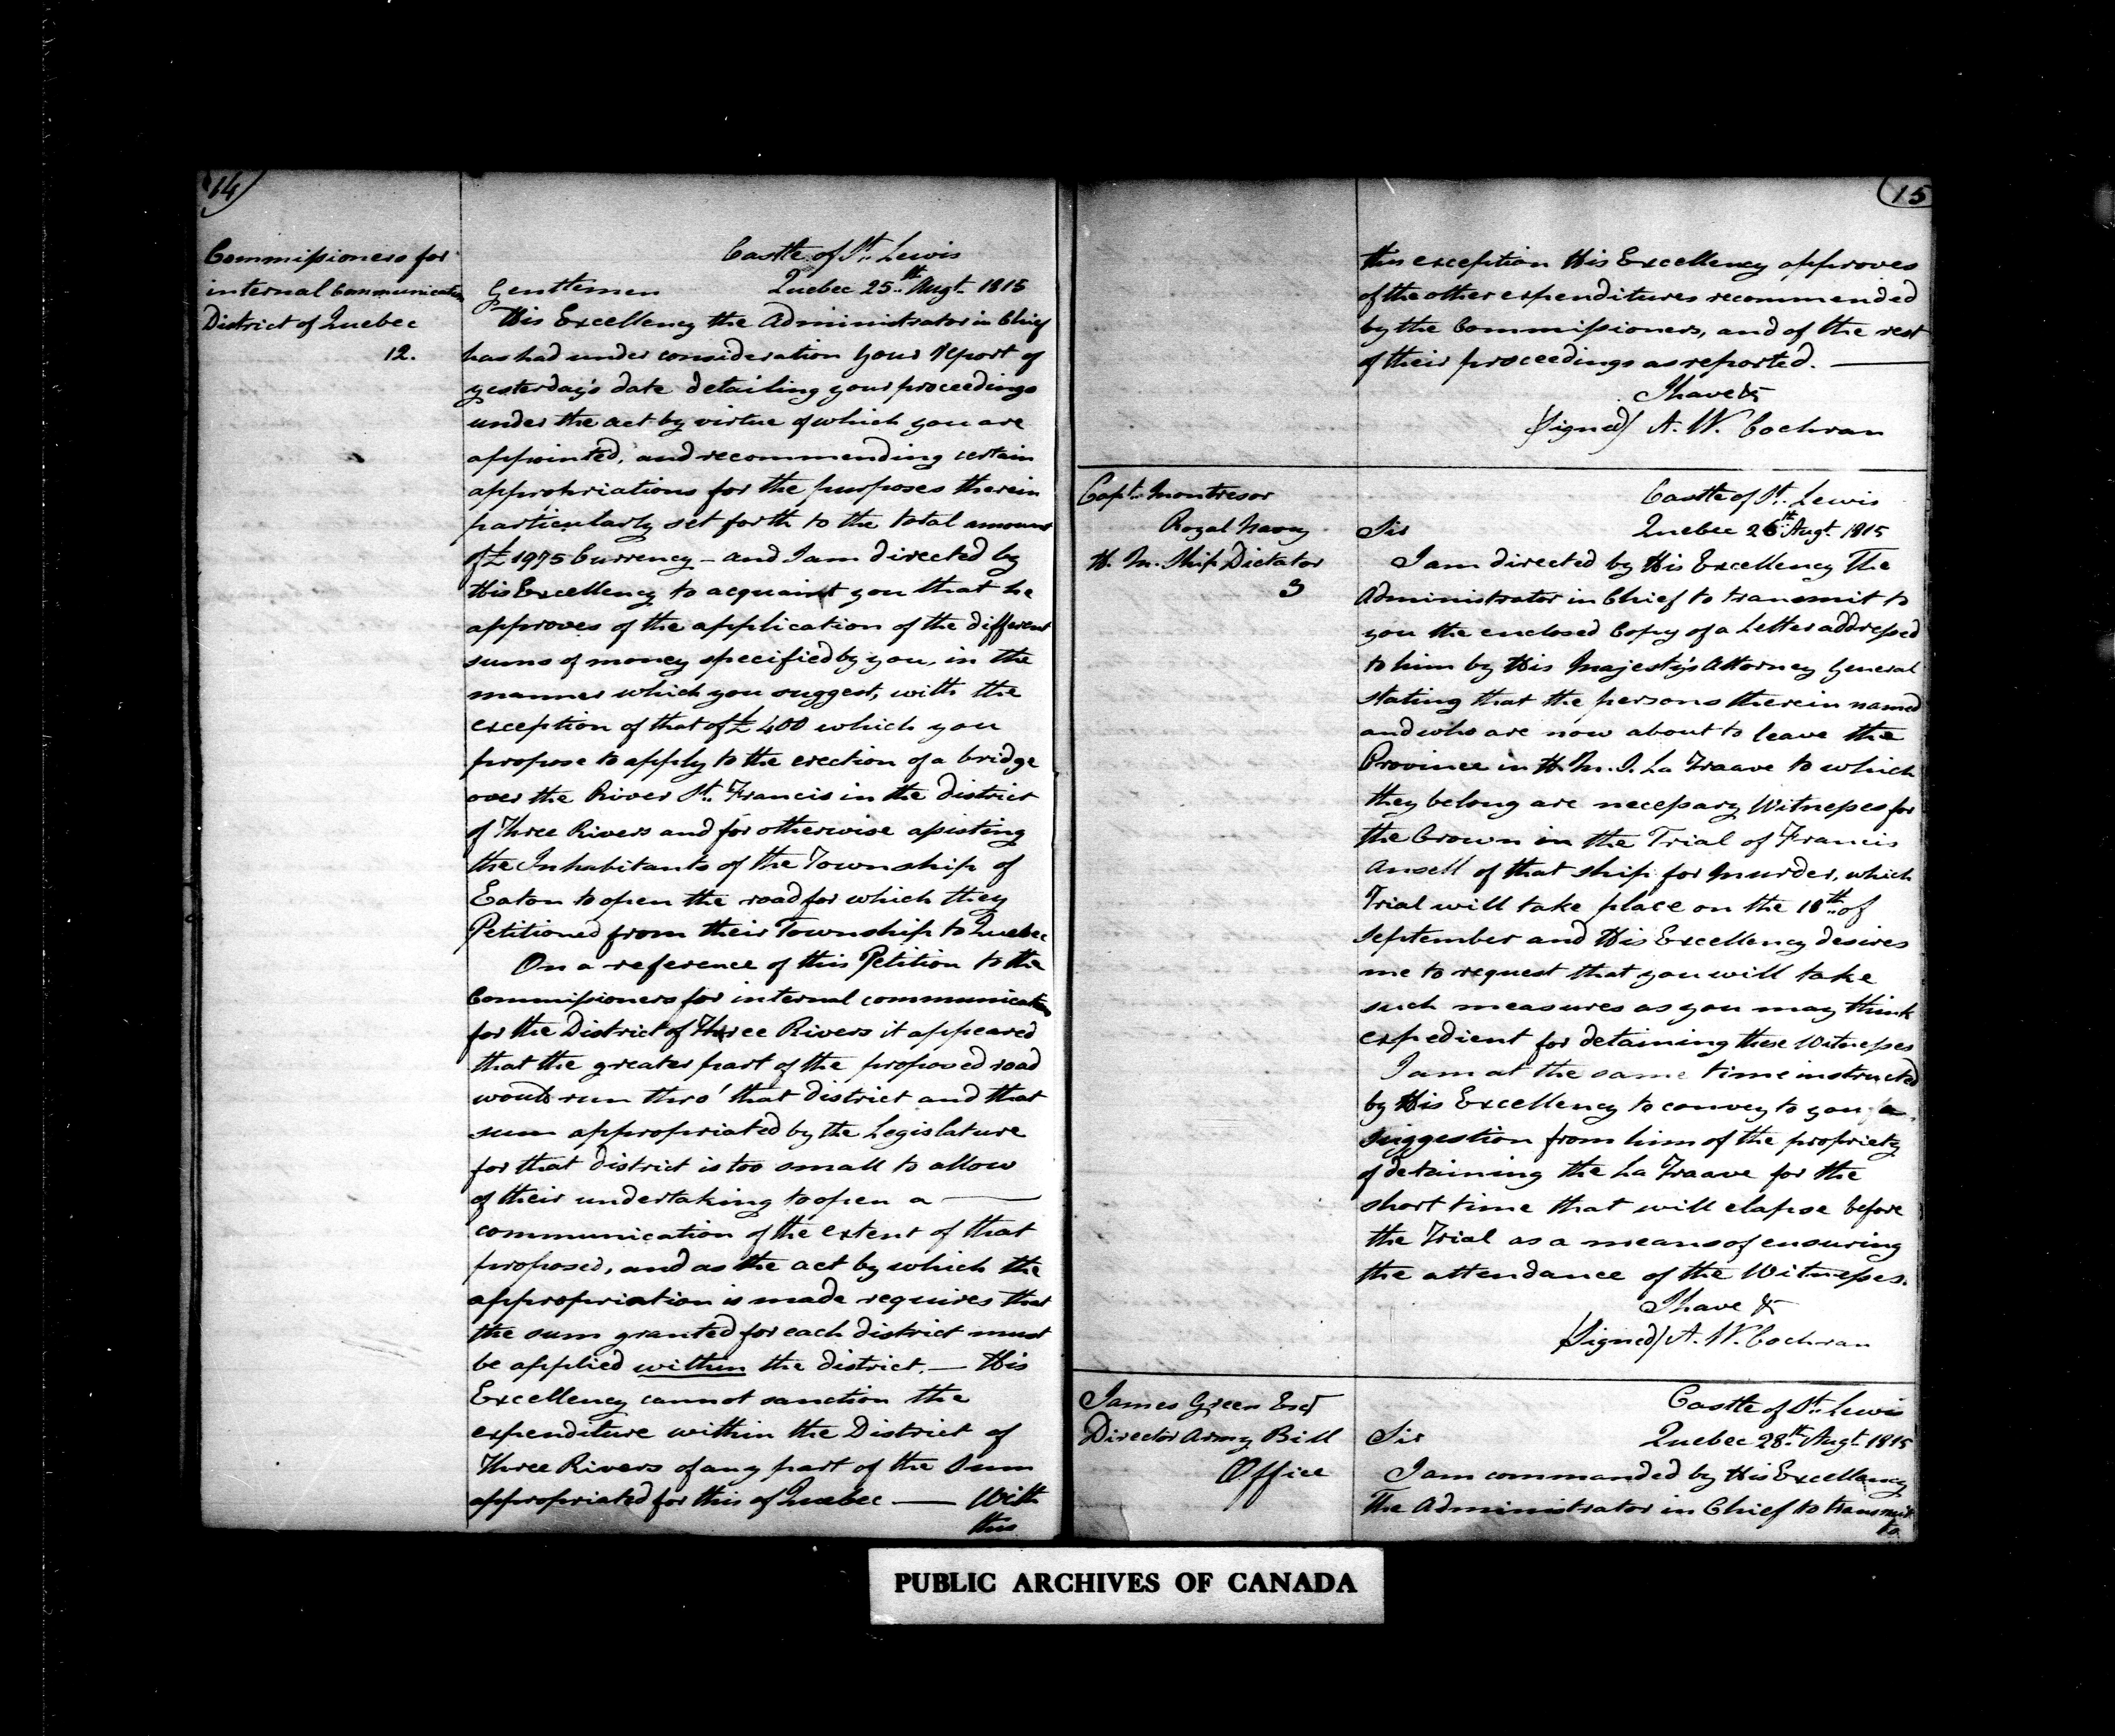 14
Commissioners for
internal Communication
District of Quebec
12.
Castle of St. Lewis
Gentlemen Quebec 25th Augt. 1815
His Excellency the Administrator in Chief
has had under consideration your report of
yesterday's date detailing your proceedings
under the act by virtue of which you are
appointed, and recommending certain
appropriations for the purposes therein
particularly set forth to the total amount
of £1975 Currency – and I am directed by
His Excellency to acquaint you that he
approves of the application of the different
sums of money specified by you, in the
manner which you suggest, with the
exception of that of £400 which you
propose to apply to the erection of a bridge
over the River St. Francis in the district
of Three Rivers and for otherwise assisting
the Inhabitants of the Township of
Eaton to open the road for which they
Petitioned from their Township to Quebec
On a reference of this Petition to the
Commissioners for internal communication
for the District of Three Rivers it appeared
that the greater part of the proposed road
would run thro' that district and that
sum appropriated by the Legislature
for that district is too small to allow
of their undertaking to open a —
communication of the extent of that
proposed, and as the act by which the
appropriation is made requires that
the sum granted for each district must
be applied within the district. — His
Excellency cannot sanction the
expenditure within the District of
Three Rivers of any part of the Sum
appropriated for this of Quebec — With
this
15
this exception His Excellency approves
of the other expenditures recommended
by the Commissioners, and of the rest
of their proceedings as reported. —
I have &
(signed) A. W. Cochran
Capt. Montresor
Royal Navy
H. M. Ship Dictator
3
Castle of St. Lewis
Sir Quebec 26th Augt. 1815
I am directed by His Excellency The
Administrator in Chief to transmit to
you the enclosed Copy of a Letter addressed
to him by His Majesty's Attorney General
stating that the persons therein named
and who are now about to leave the
Province in H. M. S. La Traave to which
they belong are necessary Witnesses for
the Crown in the Trial of Francis
Ansell of that ship for Murder, which
Trial will take place on the 10th of
September and His Excellency desires
me to request that you will take
such measures as you may think
expedient for detaining these Witnesses
I am at the same time instructed
by His Excellency to convey to you a
suggestion from him of the propriety
of detaining the La Traave for the
short time that will elapse before
the Trial as a means of ensuring
the attendance of the Witnesses.
I have &
(Signed) A. W. Cochran
James Green Esqr
Director Army Bill
Office
Castle of St. Lewis
Sir Quebec 28th Augt. 1815
I am commanded by His Excellency
The Administrator in Chief to transmit
to
PUBLIC ARCHIVES OF CANADA